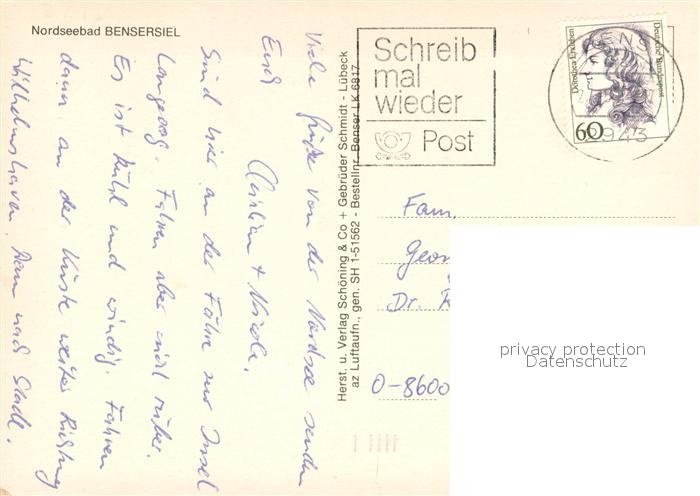 Nordseebad BENSERSIEL
Viele Grüße von der Nordsee senden
Euch
Christian + Nicole.
Sind hier an der Fähre zur Insel
Langeoog. Fahren aber nicht rüber.
Es ist kühl und windig. Fahren
dann an der Küste weiter Richtung
Wilhelmshaven. Dann nach Stade.
Herst. u. Verlag Schöning & Co + Gebrüder Schmidt - Lübeck
az Luftaufn., gen. SH 1-51562 - Bestellnr. Benser LK 6817
Schreib
mal
wieder
Post
Dorothea Erxleben
Deutsche Bundespost
60
ENS
2943
Fam.
Geor
Dr. K
O-8600
privacy protection
Datenschutz